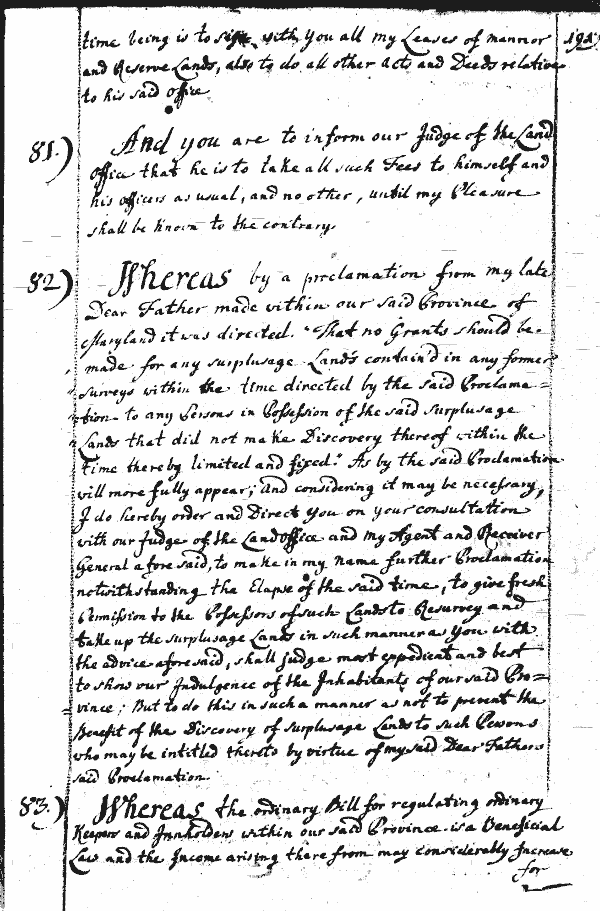 time being is to sign with you all my Leases of mannor
and Reserve Lands, also to do all other acts and Deeds relative
to his said office
81.) And you are to inform our Judge of the Land
office that he is to take all such Fees to himself and
his officers as usual, and no other, until my Pleasure
shall be known to the contrary.
82) Whereas by a proclamation from my late
Dear Father made within our said Province of
Maryland it was directed. "That no Grants should be
made for any surplusage Lands contain'd in any former
surveys within the time directed by the said Proclama=
"tion to any Persons in Possession of the said surplusage
"Lands that did not make Discovery thereof within the
time thereby limited and fixed." As by the said Proclamation
will more fully appear; And considering it may be necessary,
I do hereby order and Direct you on your consultation
with our Judge of the Land office and my Agent and Receiver
General afore said, to make in my name further Proclamation
notwithstanding the Elapse of the said time, to give fresh
Permission to the Possessors of such Lands to Resurvey and
take up the surplusage Lands in such manner as you with
the advice aforesaid, shall judge most expedient and best
to show our Indulgence of the Inhabitants of our said Pro=
vince; But to do this in such a manner as not to prevent the
Benefit of the Discovery of surplusage Lands to such Persons
who may be intitled thereto by virtue of my said Dear Fathers
said Proclamation.
83.) Whereas the ordinary Bill for regulating ordinary
Keepers and Innholders within our said Province is a Beneficial
Law and the Income arising there from may considerably Increase
for